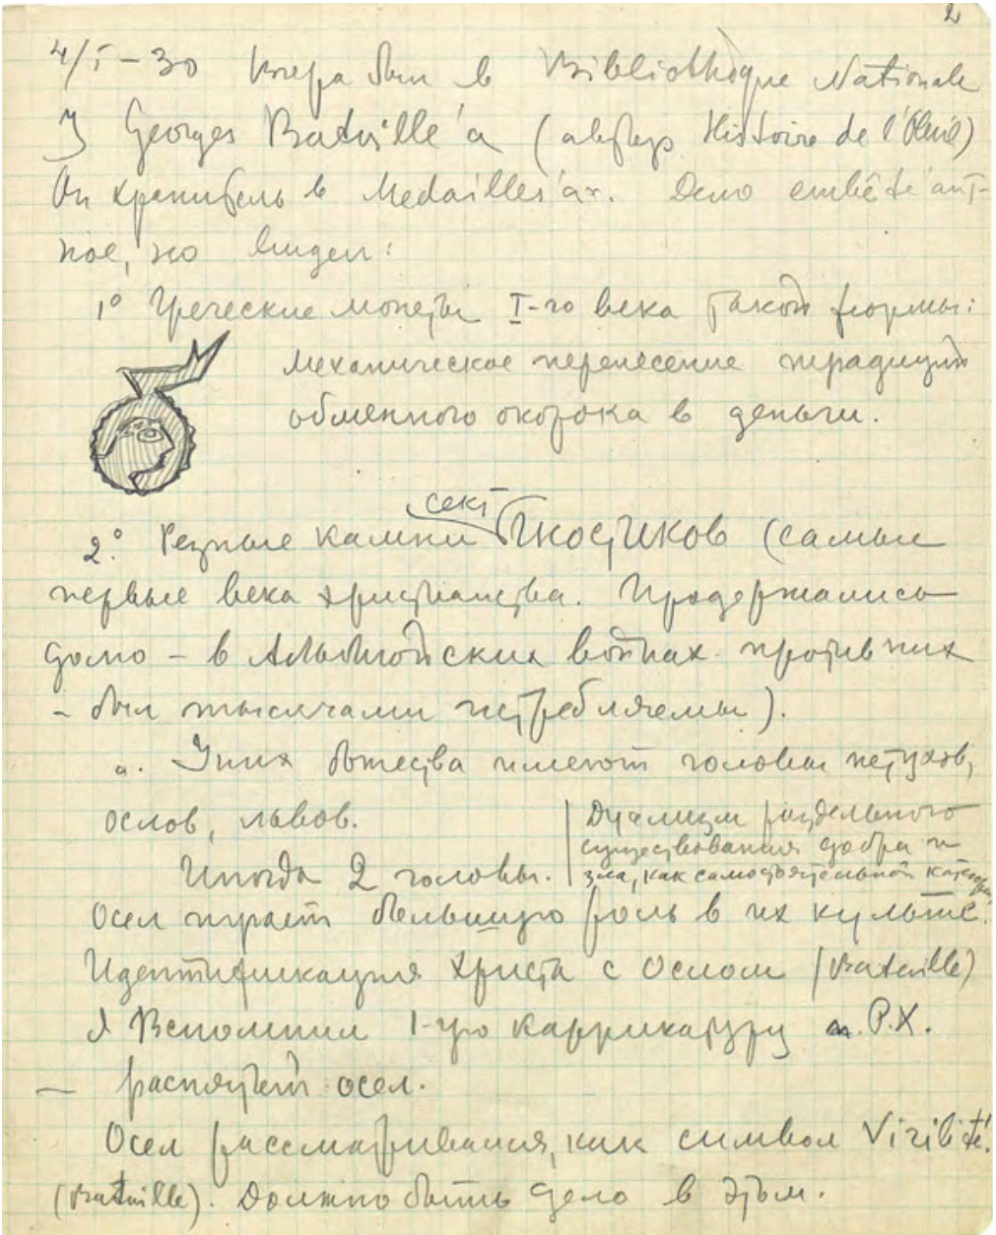 2
4/I – 30 Вчера был в Bibliothèque Nationale
у Georges Bataille'а (автор Histoire de l'Œuil)
Он хранитель в Medailles'ах. Дело embêté'ант-
ное, но видел:
1° Греческие монеты I-го века такой формы:
механическое перенесение традиций
обменного окорока в деньги.
сект
2° Резные камни Гностиков (самые
первые века христианства. Продержались
долго – в Альбигойских войнах против них
– был тысячами истребляемы).
а. У них божества имеют головы петухов,
ослов, львов.
Иногда 2 головы.
Дуализм раздельного
существования добра и
зла, как самостоятельной категории
Осел играет большую роль в их культе.
Идентификация Христа с Ослом (Bataille)
Я вспомнил 1-ую каррикатуру на Р.Х.
— распятый осел.
Осел рассматривался, как символ Virilité.
(Bataille). Должно быть дело в этом.